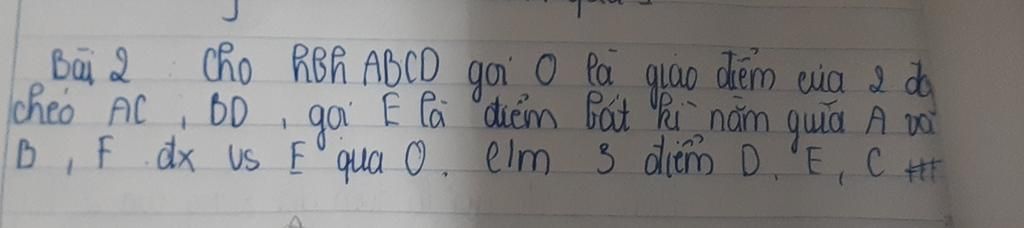 Bài 2 : Cho hbh ABCD gọi O là giao điểm của 2 đg
chéo AC, BD, gọi E là điểm bất kì nằm giữa A và
B, F đx vs E qua O. c/m 3 điểm D, E, C